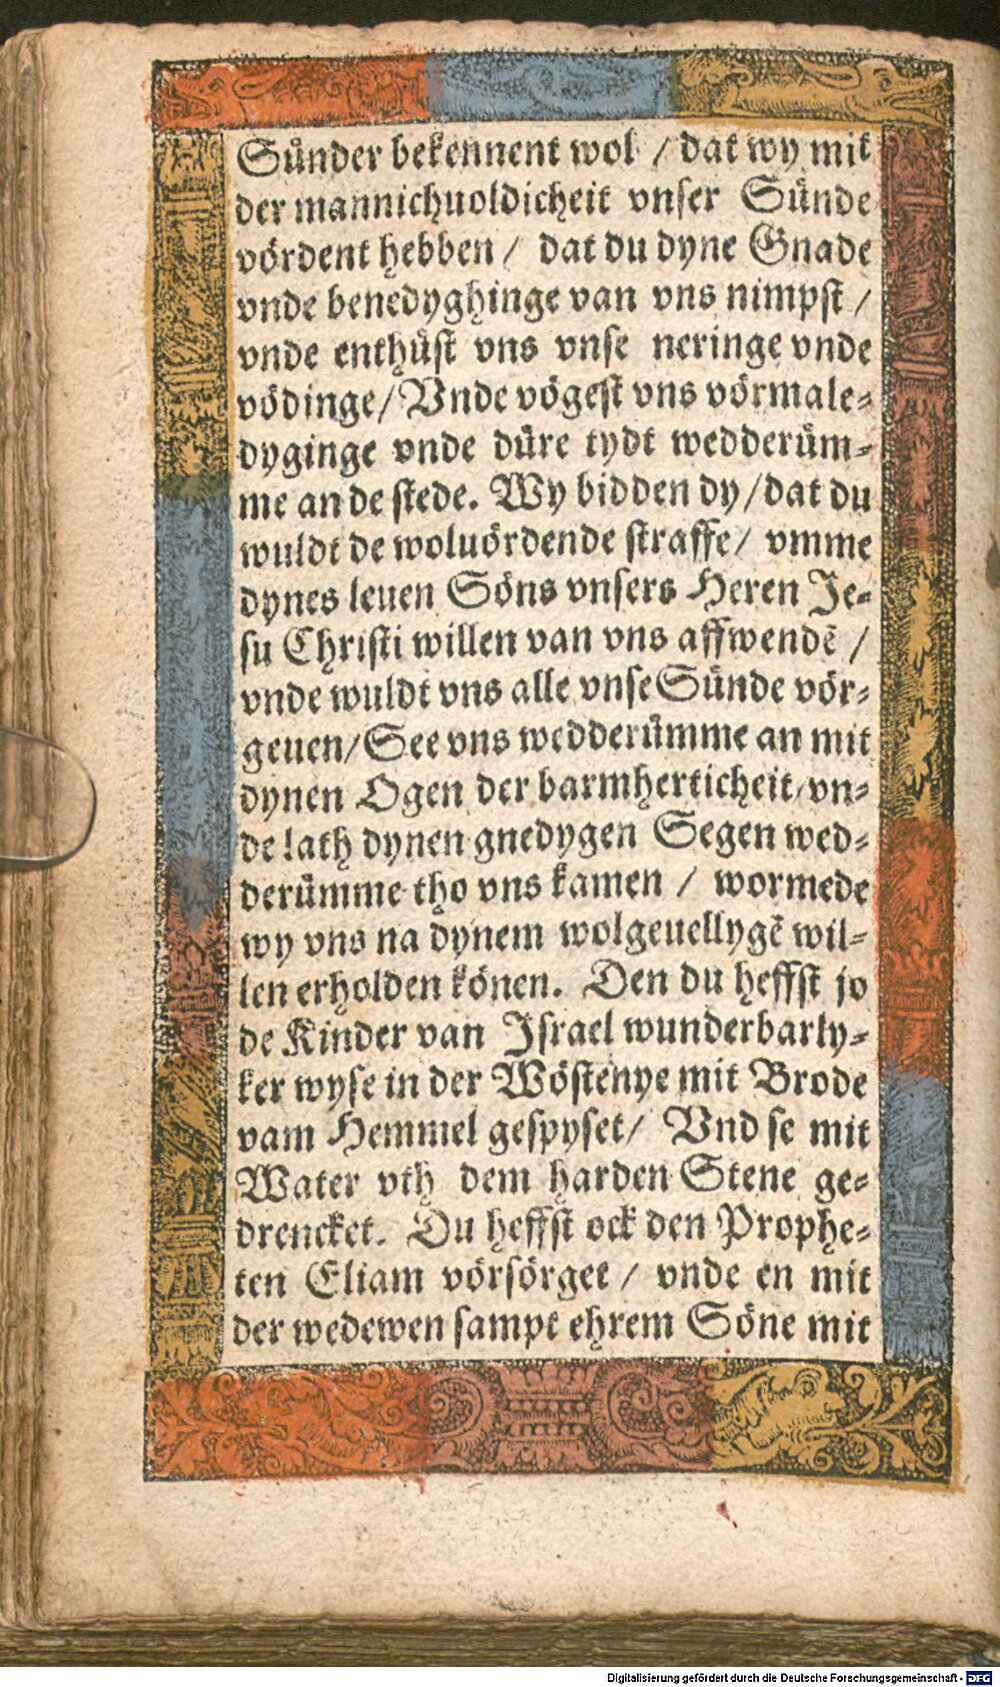 Sünder bekennent wol / dat wy mit
der mannichuoldicheit vnser Sünde
vördent hebben / dat du dyne Gnade
vnde benedyghinge van vns nimpst /
vnde enthüst vns vnse neringe vnde
vödinge / Vnde vögest vns vörmale⸗
dyginge vnde düre tydt wedderüm⸗
me an de stede. Wy bidden dy / dat du
wuldt de woluördende straffe / vmme
dynes leuen Söns vnsers Heren Je⸗
su Christi willen van vns affwendē /
vnde wuldt vns alle vnse Sünde vör⸗
geuen / See vns wedderümme an mit
dynen Ogen der barmherticheit / vn⸗
de lath dynen gnedygen Segen wed⸗
derümme tho vns kamen / wormede
wy vns na dynem wolgeuellygē wil⸗
len erholden könen. Den du heffst jo
de Kinder van Israel wunderbarly⸗
ker wyse in der Wöstenye mit Brode
vam Hemmel gespyset / Vnd se mit
Water vth dem harden Stene ge⸗
drencket. Du heffst ock den Prophe⸗
ten Eliam vörsörget / vnde en mit
der wedewen sampt ehrem Söne mit
Digitalisierung gefördert durch die Deutsche Forschungsgemeinschaft - DFG